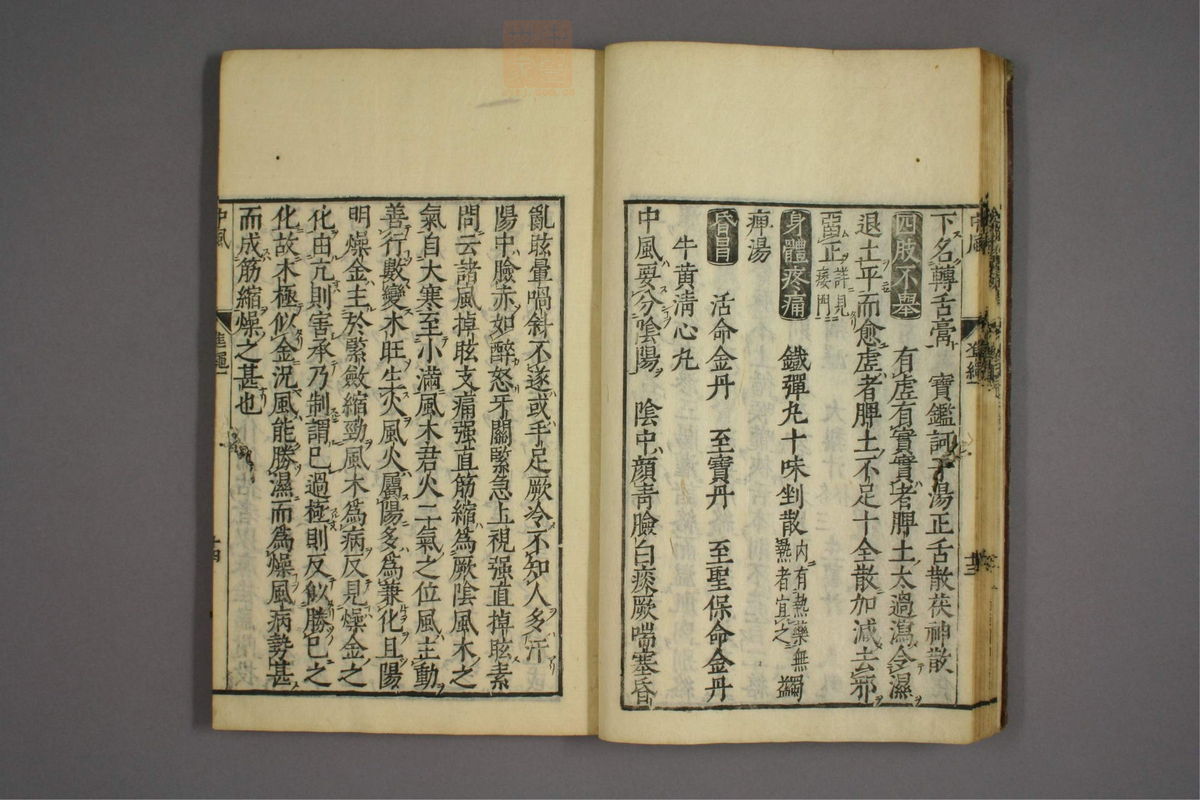 下名轉舌膏　寶鑑訶子湯正舌散茯神散
四肢不舉　有虛有實實者脾土太過瀉令濕
退土平而愈虛者脾土不足十全散加減去邪
留正詳見痿門
身體疼痛　鐵彈丸十味剉散內有熱藥無獨熱者宜之
痺湯
昏冒　活命金丹　至寶丹　至聖保命金丹
牛黃淸心丸
中風要分陰陽　陰中顏靑臉白痰厥喘塞昏
亂眩暈喎斜不遂或手足厥冷不知人多汗
陽中臉赤如醉怒牙關緊急上視强直掉眩素
問云諸風掉眩支痛强直筋縮爲厥陰風木之
氣自大寒至小滿風木君火二氣之位風主動
善行數變木旺生火風火屬陽多爲兼化且陽
明燥金主於緊斂縮勁風木爲病反見燥金之
化由亢則害承乃制謂已過極則反似勝己之
化故木極似金況風能勝濕而爲燥風病勢甚
而成筋縮燥之甚也
中風
十四